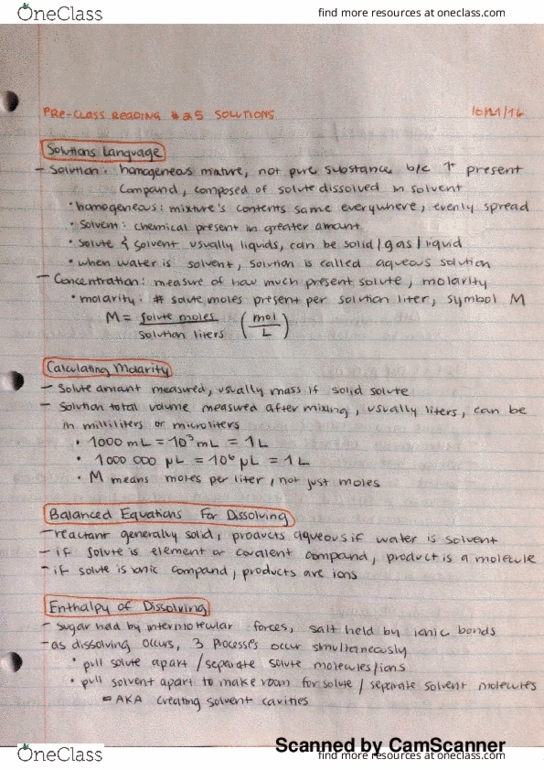 OneClass
find more resources at oneclass.com
PRE-CLASS READING #25 SOLUTIONS
Solutions Language
- Solution: homogeneous mixture, not pure substance b/c ↑ present
compound, composed of solute dissolved in solvent
• homogeneous: mixture's contents same everywhere, evenly spread
• Solvent: chemical present in greater amount
• solute & solvent usually liquids, can be solid/gas/liquid
• when water is solvent, solution is called aqueous solution
- Concentration: measure of how much present solute, molarity
• molarity: # solute moles present per solution liter, symbol M
M = solute moles / solution liters (mol/L)
Calculating Molarity
- Solute amount measured, usually mass if solid solute
- Solution total volume measured after mixing, usually liters, can be
in milliliters or microliters
• 1000 mL = 10³ mL = 1 L
• 1000 000 µL = 10⁶ µL = 1 L
• M means moles per liter, not just moles
Balanced Equations For Dissolving
- reactant generally solid, products aqueous if water is solvent
- if solute is element or covalent compound, product is a molecule
- if solute is ionic compound, products are ions
Enthalpy of Dissolving
- sugar held by intermolecular forces, salt held by ionic bonds
- as dissolving occurs, 3 processes occur simultaneously
• pull solute apart / separate solute molecules/ions
• pull solvent apart to make room for solute / separate solvent molecules
= AKA creating solvent cavities
Scanned by CamScanner
OneClass
find more resources at oneclass.com